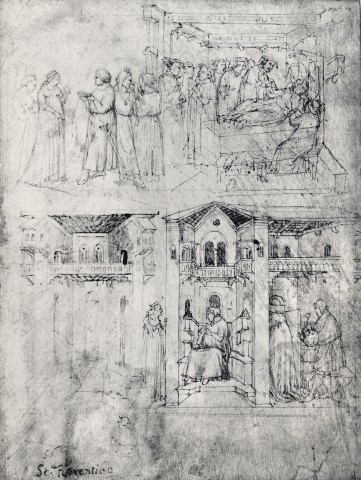 Sc. Fiorentina